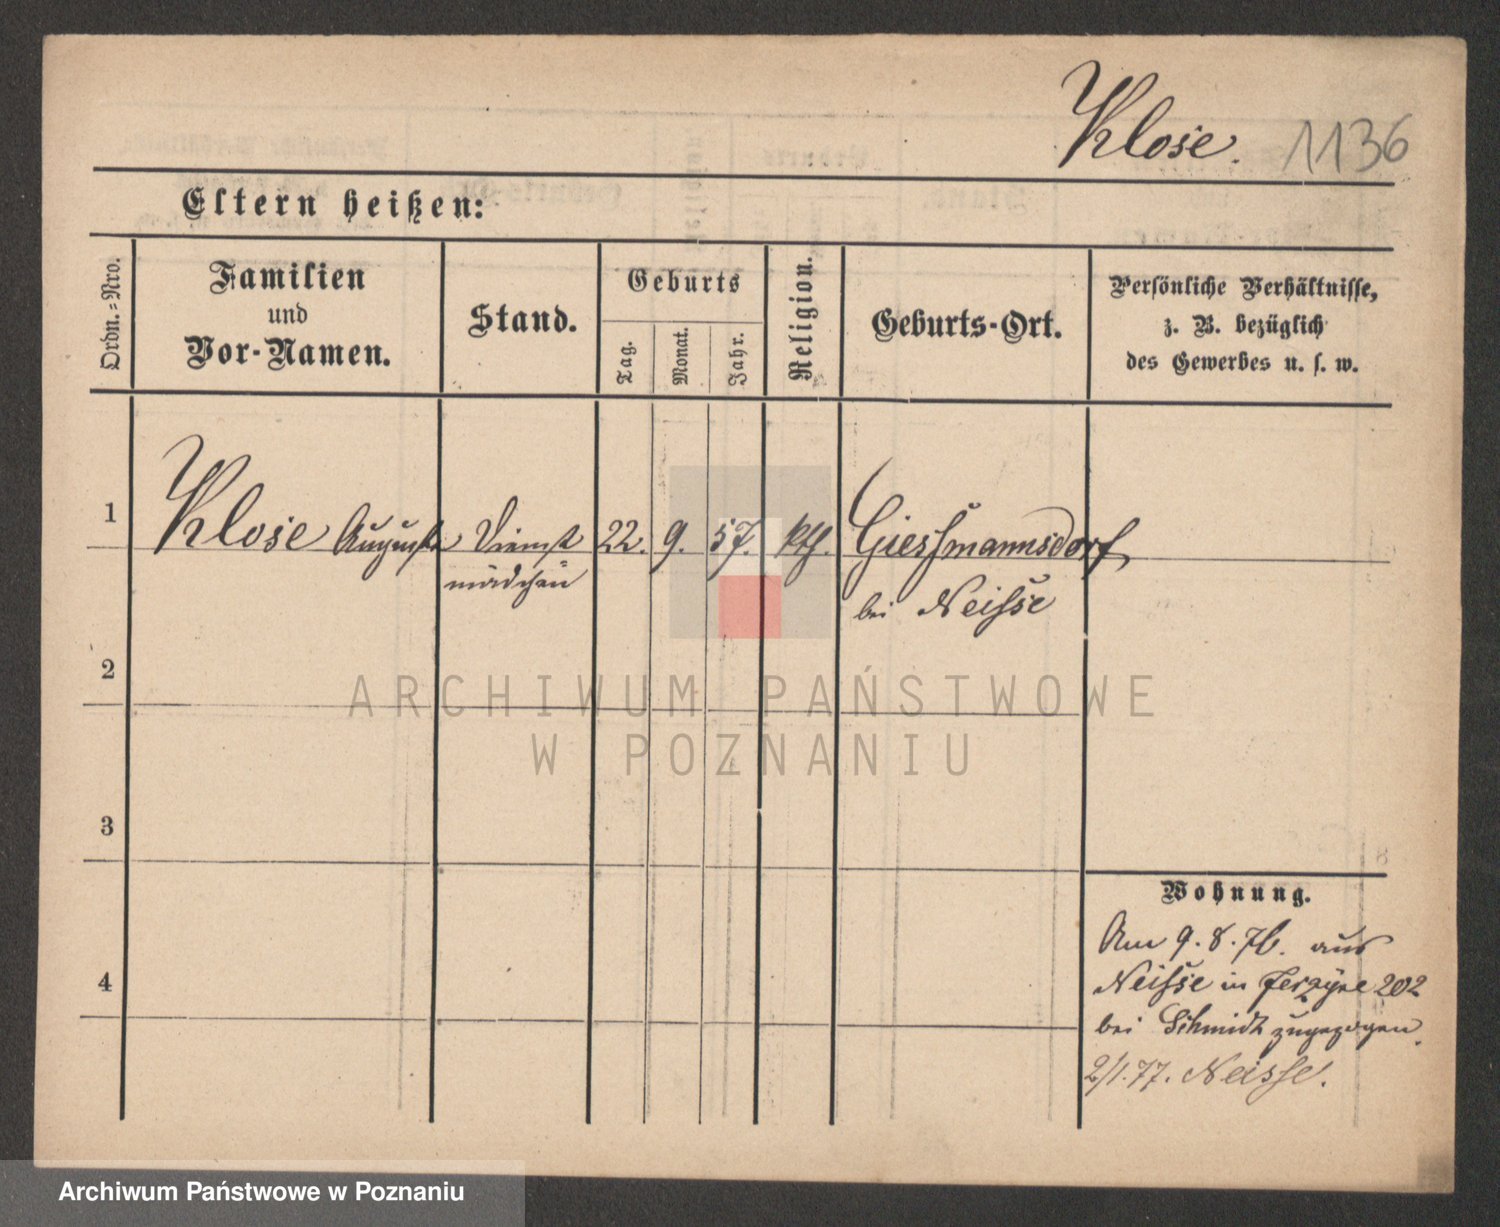 Klose. 1136
Eltern heißen:
Ordn.=Nro.
Familien
und
Vor-Namen.
Stand.
Geburts
Tag.
Monat.
Jahr.
Religion.
Geburts-Ort.
Persönliche Verhältnisse,
z. B. bezüglich
des Gewerbes u. s. w.
1 Klose Auguste Dienst 22. 9. 57. kth. Giessmannsdorf
mädchen bei Neisse
2
3
4
Wohnung.
Am 9. 8. 76. aus
Neisse in Jerzyce 202
bei Schmidt zugezogen.
2/1. 77. Neisse.
ARCHIWUM PAŃSTWOWE
W POZNANIU
Archiwum Państwowe w Poznaniu